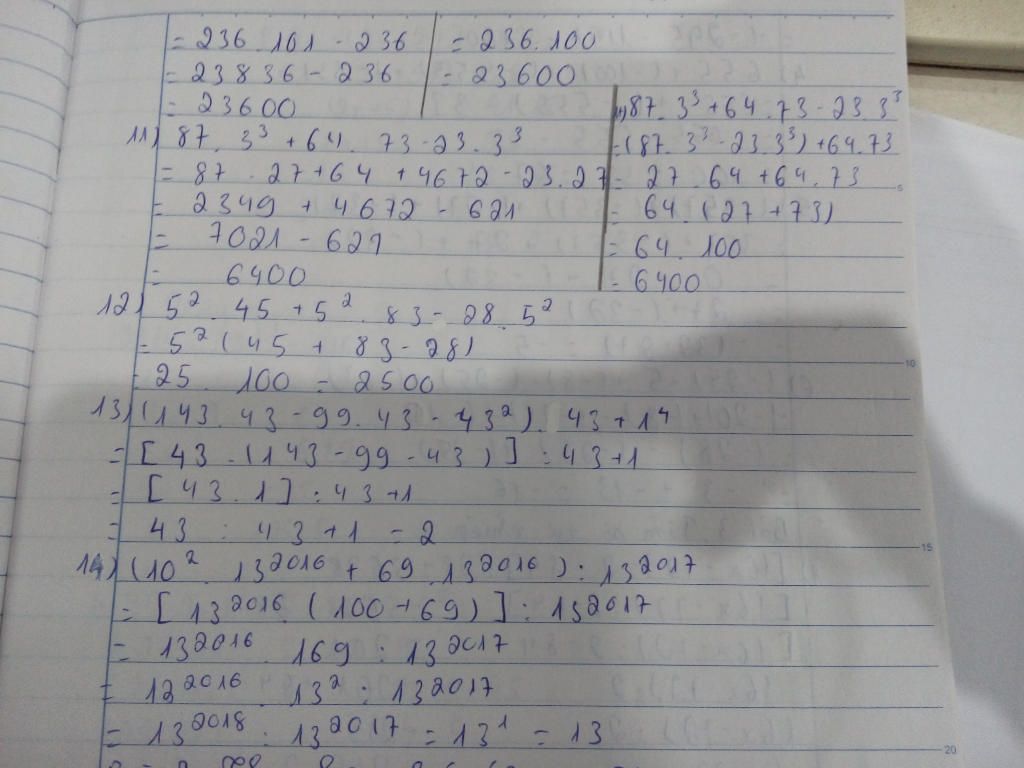 = 236 . 101 - 236
= 23836 - 236
= 23600
= 236.100
= 23600
11) 87 . 3³ + 64 . 73 - 23 . 3³
= 87 . 27 + 64 + 4672 - 23.27
= 2349 + 4672 - 621
= 7021 - 621
= 6400
11) 87. 3³ + 64 . 73 - 23. 3³
= (87. 3³ - 23. 3³) + 64.73
= 27 . 64 + 64 . 73
= 64 (27 + 73)
= 64 . 100
= 6400
12) 5² . 45 + 5² . 83 - 28 . 5²
= 5² (45 + 83 - 28)
= 25 . 100 = 2500
13) (143 . 43 - 99 . 43 - 43²) . 43 + 1⁴
= [43 . (143 - 99 - 43)] : 43 + 1
= [43 . 1] : 43 + 1
= 43 : 43 + 1 = 2
14) (10² . 13²⁰¹⁶ + 69 . 13²⁰¹⁶) : 13²⁰¹⁷
= [13²⁰¹⁶ . (100 + 69)] : 13²⁰¹⁷
= 13²⁰¹⁶ . 169 : 13²⁰¹⁷
= 13²⁰¹⁶ . 13² : 13²⁰¹⁷
= 13²⁰¹⁸ : 13²⁰¹⁷ = 13¹ = 13
5
10
15
20